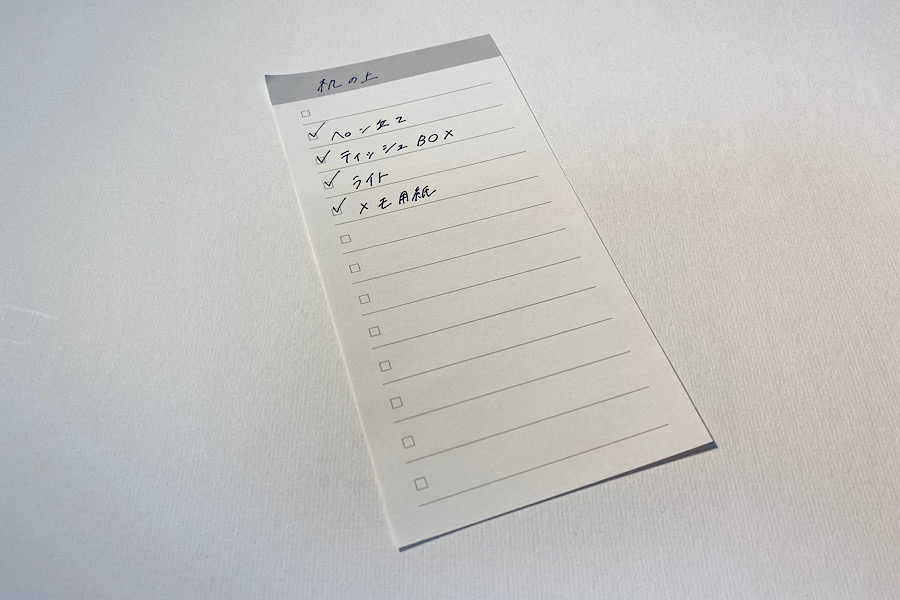 机の上
ペン立て
ティッシュBOX
ライト
メモ用紙